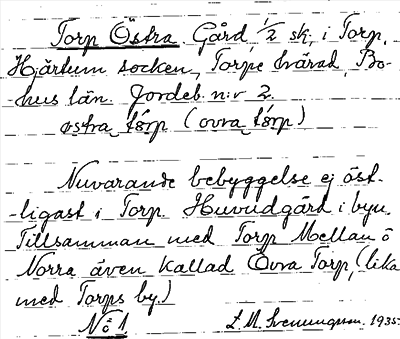 Torp Östra. Gård 1/2 sk. i Torp,
Hjärtum socken, Torpe härad, Bo-
-hus län. Jordeb. n:r 2.
østra tårp (øvra tårp)
Nuvarande bebyggelse ej öst-
-ligast i Torp. Huvudgård i byn.
Tillsamman med Torp Mellan o
Norra även kallad Övra Torp, (lika
med Torps by.)
No 1
L. M. Svenungsson. 1935.